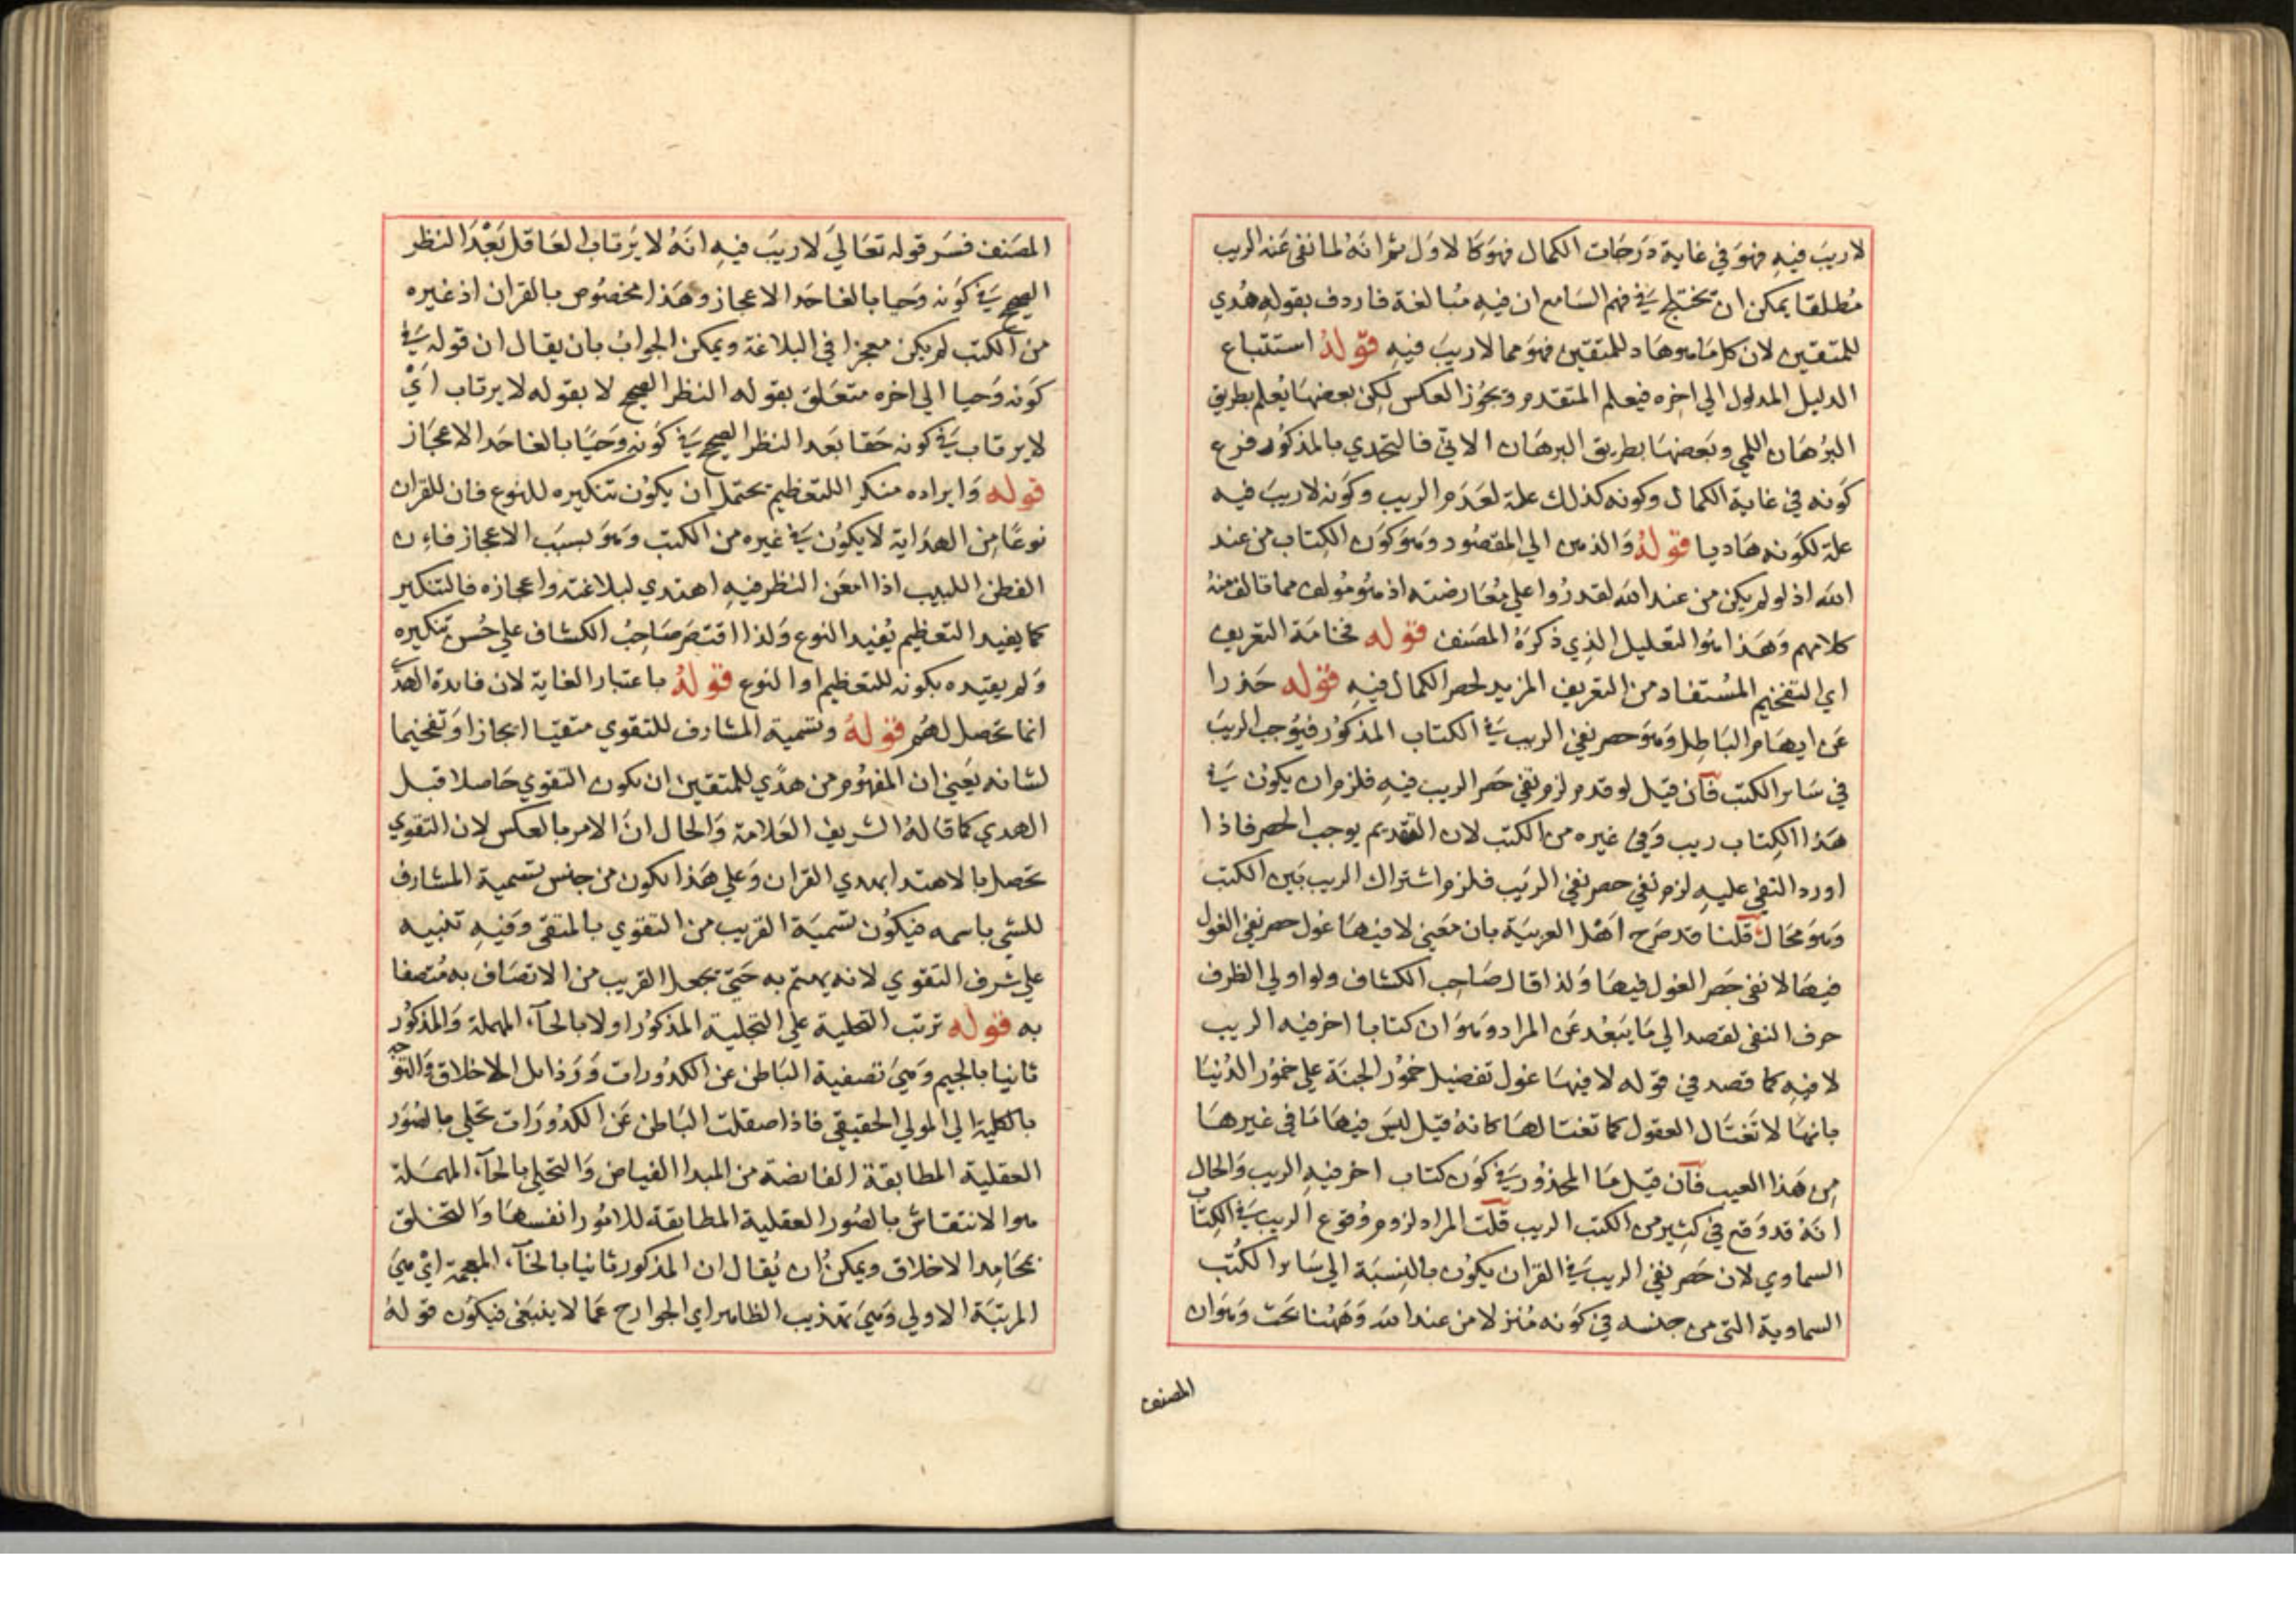 لاريبَ فيهِ فهوَ في غاية دَرَجَات الكمال فهوَ كالاوَل ثمَّ انَهُ لما نفى عَنه الريب
مُطلقا يمكن ان تختلج في فهم السَامع ان فيهِ مُبالغة فاردف بقولهِ هُدي
للمتقين لان كل مَا هو هَاد للمتقين فهوَ مما لاريبَ فيهِ قولهُ استتباع
الدليل المدلول الي اخِره فيعلم المتقدم ويجُوز العكس لكِن بعضهَا يُعلم بطريق
البرُهَان اللمي وبَعضهَا بطريق البرهَان الاني فالتحدي بالمذكوُر فرع
كَونه في غاية الكمال وكونه كذلك علة لعَدَم الريب وكَونه لاريبَ فيه
علة لكَونه هَاديا قولهُ وَالذهن الي المقصُود وَهوَ كوَن الكِتاب من عند
الله اذ لو لم يكن من عند الله لقدرُوا علي مُعَارضته اذ هوُ مُولف مما قالف منهُ
كلامهم وَهَذا هوُ التعليل الذِي ذكرَهُ المصَنف قوله فخامَة التعريف
اي التفخيم المسُتفاد من التعريف المزيد لحصر الكمال فيهِ قوله حَذرا
عَن ايهَام البَاطِل وَهوَ حصر نفي الريب في الكتاب المذكوُر فيوُجب الريبَ
في سَاير الكتب فآن قيل لو قدم لزم نفي حَصر الريب فيهِ فلزم ان يكوُن في
هَذا الكِتاب ريب وَفي غيره من الكتب لان التقديم يوجب الحصر فاذا
اورد النفي عليهِ لزم نفي حصر نفي الريَب فلزم اشتراك الريب بَين الكتب
وَهوَ مُحَال قلنا قد صَرح اَهْل العربيَة بان مَعني لا فيهَا غول حصر نفي الغول
فيهَا لا نفى حَصر الغول فيهَا وَلذا قال صَاحِب الكشاف ولو اولي الظرف
حرف النفى لقصد الي مَا يَبعُد عَن المراد وَهوَ ان كتابا اخر فيه الريب
لا فيهِ كما قصد في قوله لا فيهَا غول تفضيل خموُر الجنَة علي خموُر الدُنيَا
بانهَا لا تَغتَال العقول كما تغتالهَا كانهُ قيل ليسَ فيهَا مَا في غيرهَا
مِن هَذا العيب فآن قيل مَا المحذوُر في كَون كتاب اخر فيهِ الريب وَالحال
انَهُ قد وَقع في كثِير من الكتب الريب قلت المراد لزوم وُقوع الريب في الكِتاب
السماوي لان حَصر نفي الريب في القران يكوُن بالنِسبَة الي سَاير الكُتب
السماوية التي من جنسه في كَونه مُنزلا من عند الله وَههُنا بَحث وَهوَ ان
المصنف
المصَنف فسَر قوله تعَالي لاريبَ فيهِ انهُ لا يَرتاب العَاقل بَعْدَ النظر
الصحيح في كَونه وَحيا بالغا حَد الاعجاز وهَذا مخصُوص بالقران اذ غيره
من الكتب لم يكن معجزا في البلاغة ويمكن الجوابُ بان يقال ان قوله في
كَونه وَحيا الي اخره متعَلق بقوله النظر الصحيح لا بقوله لا يرتاب ايْ
لا يرتاب في كونه حَقا بعَد النظر الصحيح في كَونهِ وَحيًا بالغا حَد الاعجَاز
قوله وَايراده منكرا للتعَظيم يحتمل ان يكوُن تنكيره للنوع فان للقران
نوعًا مِن الهدَاية لا يكوُن في غيره من الكتب وَهوَ بسبَب الاعجاز فان
الفطن اللبيب اذا امعَن النظر فيهِ اهتدي لبلاغته واعجازه فالتنكير
كما يفيد التعَظيم يُفيد النوع وَلذا اقتصَر صَاحِبُ الكشاف علي حُسن تنكيره
وَلم يقيده بكونه للتعظيم او النوع قولهُ باعتبار الغاية لان فايدة الهدَي
انما تحَصل لهُم قولهُ وتسمية المشارف للتقوي متقيَا ايجازا وَتفخيما
لشانه يعَني ان المفهوُم من هدًي للمتقين ان يكون التقوي حَاصلا قبل
الهدي كما قالهُ الشريف العَلامة وَالحال انَ الامر بالعكس لان التقوي
تحَصل بالاهتدا بهدي القران وَعلي هَذا يكون من جنس تسمية المشارف
للشي باسمه فيكوُن تسميَة القريب من التقوي بالمتقى وَفيهِ تنبيه
علي شرف التَقوي لانه يهتم به حَتيَ يجعل القريب من الاتصَاف به مُتصفا
به قوله ترتب التحلية علي التخلية المذكوُر اولا بالحآء المهملة وَالمذكوُر
ثانيا بالجيم وَهيَ تصفية البَاطن عن الكدوُرات وَرَذايل الاخلاق وَالتوَجه
بالكلية الي المولي الحقيقي فاذا صقلت البَاطن عَن الكدوُرَات تحَلي بالصُوَر
العقلية المطابقة الفايضة من المبدا الفياض وَالتحلي بالحآء المهمَلة
هو الانتقاش بالصُور العقلية المطابقة للاموُر انفسهَا وَالتخلق
بمحَامِد الاخلاق ويمكن اُن يُقال ان المذكور ثانيا بالخآء المعجمة ايْ هيَ
المرتبَة الاولي وَهيَ تهذيب الظاهر اي الجوارح عَما لا ينبَغى فيكَون قولهُ